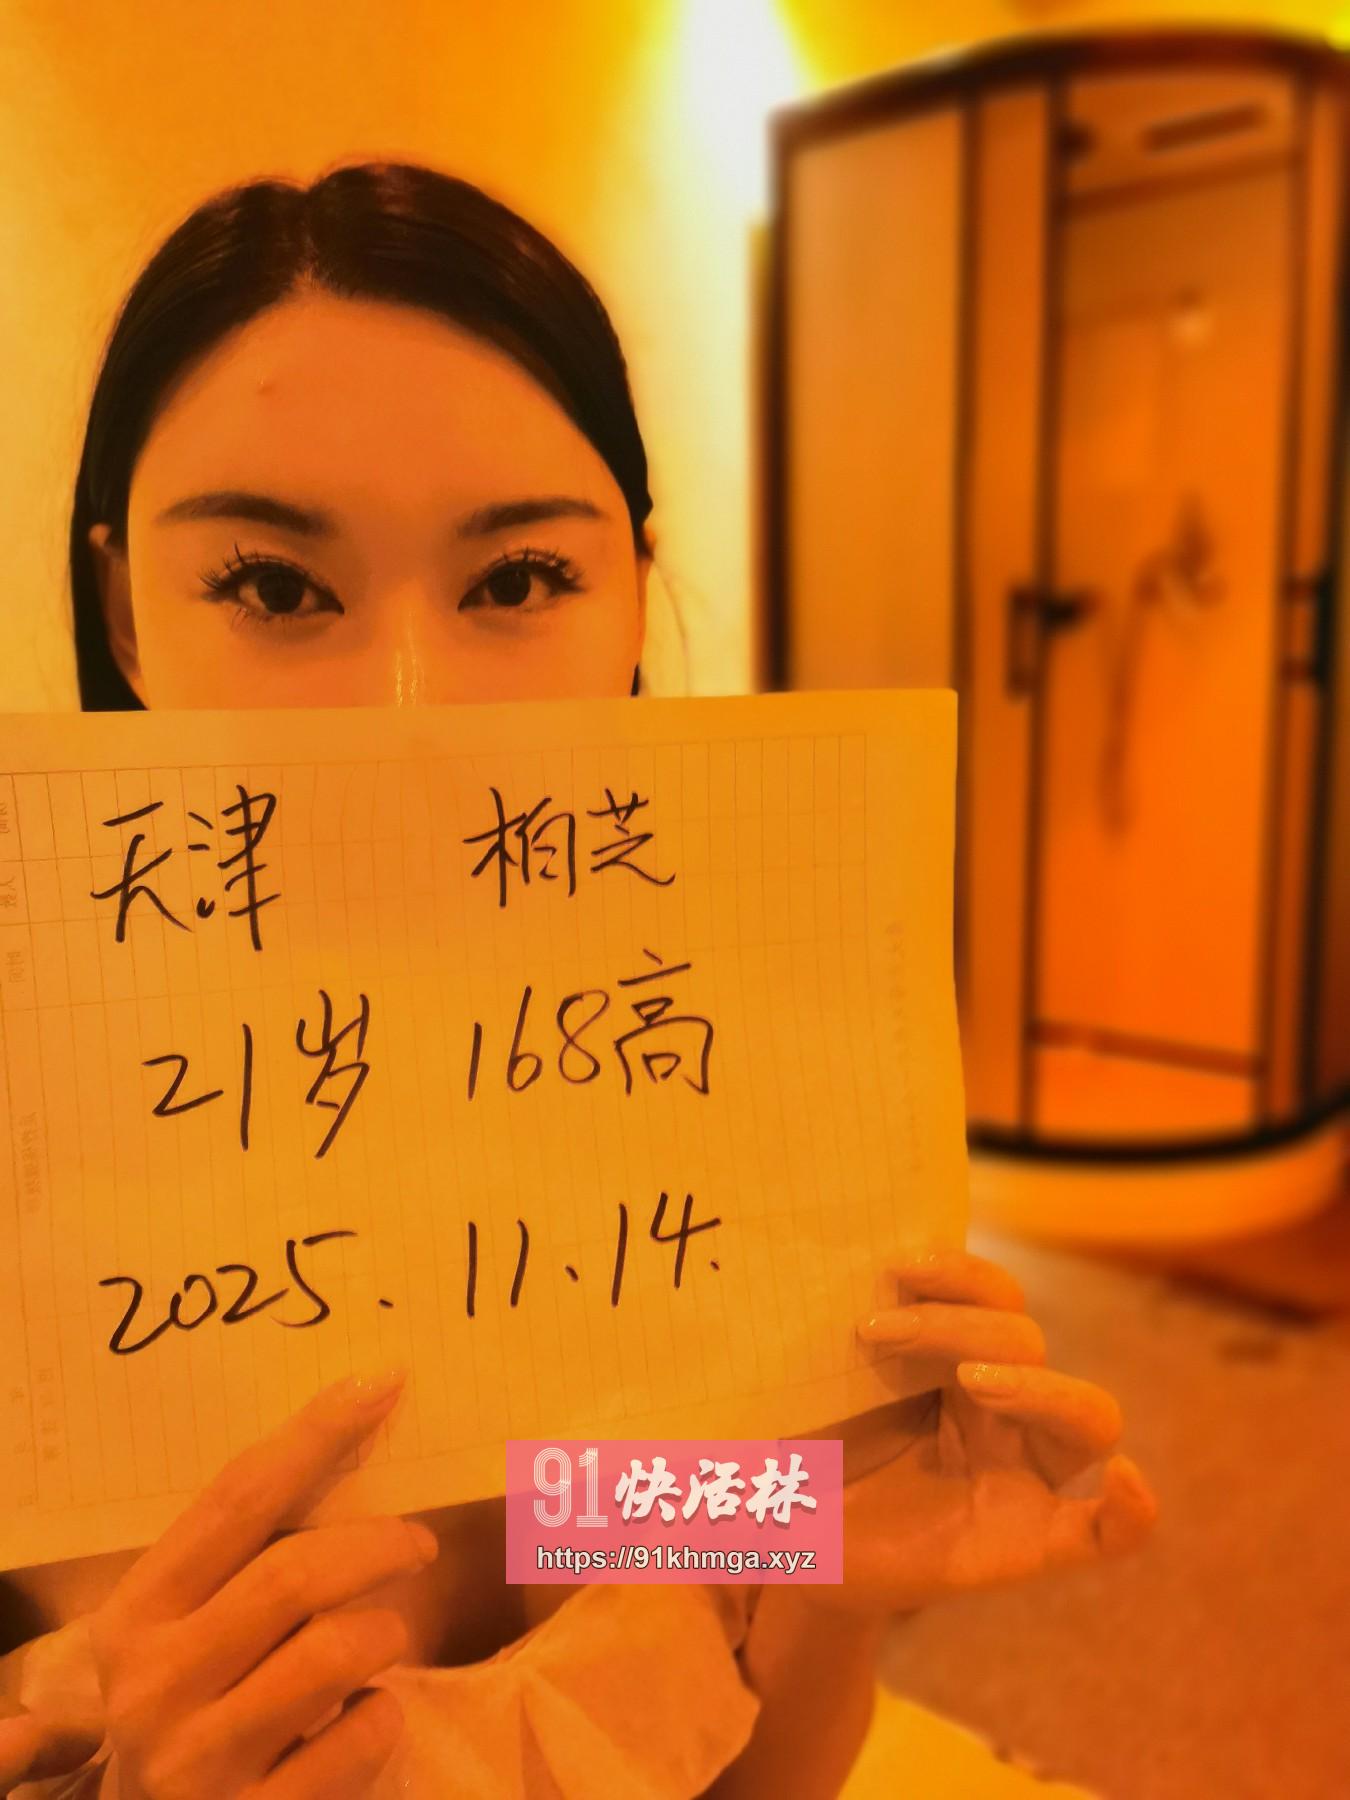 天津 柏芝
21岁 168高
2025.11.14.
91快活林
https://91khmga.xyz